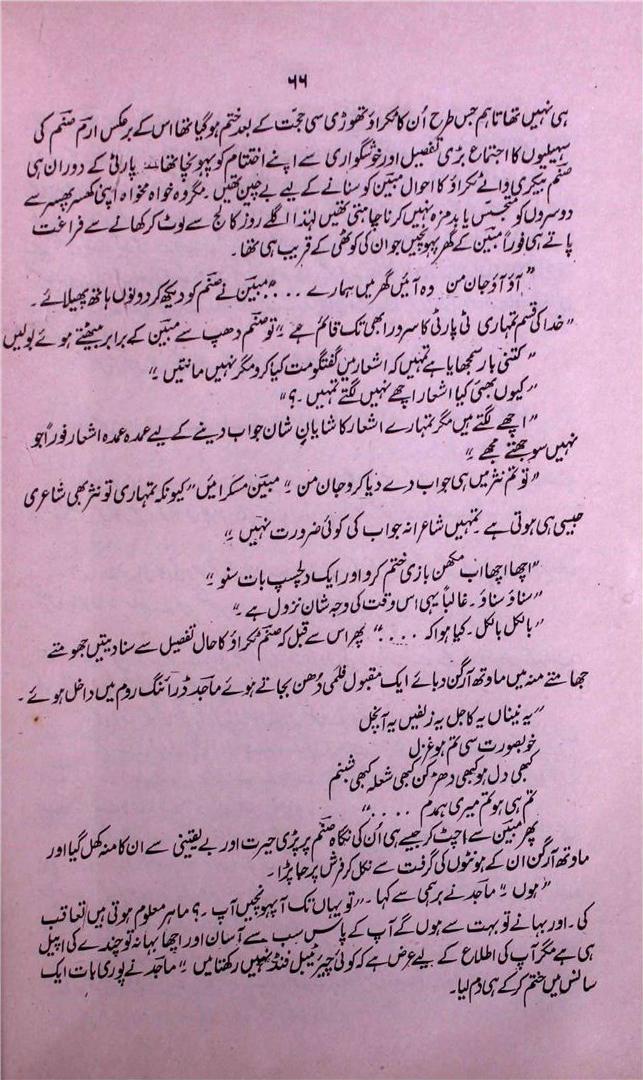 ۶۶
ہی نہیں تھا تاہم جس طرح اُن کا ٹکراؤ تھوڑی سی حجت کے بعد ختم ہو گیا تھا اس کے برعکس ارم صنم کی
سہیلیوں کا اجتماع بڑی تفصیل اور خوشگواری سے اپنے اختتام کو پہونچا تھا۔ پارٹی کے دوران ہی
صنم بیکری والے ٹکراؤ کا احوال مبین کو سنانے کے لیے بے چین تھیں۔ مگر وہ خواہ مخواہ اپنی کھسر پھسر سے
دوسروں کو متجسس یا بدمزہ نہیں کرنا چاہتی تھیں لہٰذا اگلے روز کالج سے لوٹ کر کھانے سے فراغت
پاتے ہی فوراً مبین کے گھر پہونچیں جو ان کی کوٹھی کے قریب ہی تھا۔
"آؤ آؤ جان من وہ آئیں گھر میں ہمارے ...." مبین نے صنم کو دیکھ کر دونوں ہاتھ پھیلائے۔
"خدا کی قسم تمہاری ٹی پارٹی کا سرور ابھی تک قائم ہے۔" تو صنم دھپ سے مبین کے برابر بیٹھتے ہوئے بولیں
"کتنی بار سمجھایا ہے تمہیں کہ اشعار میں گفتگو مت کیا کرو مگر نہیں مانتیں۔"
"کیوں بھئی کیا اشعار اچھے نہیں لگتے تمہیں۔؟"
"اچھے لگتے ہیں مگر تمہارے اشعار کا شایانِ شان جواب دینے کے لیے عمدہ عمدہ اشعار فوراً جو
نہیں سوجھتے مجھے۔"
"تو تم نثر میں ہی جواب دے دیا کرو جان من۔" مبین مسکرائیں "کیونکہ تمہاری تو نثر بھی شاعری
جیسی ہی ہوتی ہے۔ تمہیں شاعرانہ جواب کی کوئی ضرورت نہیں۔"
"اچھا اچھا اب مکھن بازی ختم کرو اور ایک دلچسپ بات سنو۔"
"سناؤ سناؤ۔ غالباً یہی اس وقت کی وجہ شان نزول ہے۔"
"بالکل بالکل۔ کیا ہوا کہ ...." پھر اس سے قبل کہ صنم ٹکراؤ کا حال تفصیل سے سنا دیتیں جھومتے
جھامتے منہ میں ماؤتھ آرگن دبائے ایک مقبول فلمی دُھن بجاتے ہوئے ماجد ڈرائنگ روم میں داخل ہوئے۔
"یہ نیناں یہ کاجل یہ زلفیں یہ آنچل
خوبصورت سی تم ہو غزل
کبھی دل ہو کبھی دھڑکن کبھی شعلہ کبھی شبنم
تم ہی ہو تم میری ہمدم ...."
پھر مبین سے اچٹ کر جیسے ہی اُن کی نگاہ صنم پر پڑی حیرت اور بے یقینی سے ان کا منہ کھل گیا اور
ماوتھ آرگن ان کے ہونٹوں کی گرفت سے نکل کر فرش پر جا پڑا۔
"ہوں۔" ماجد نے برہمی سے کہا۔ "تو یہاں تک آ پہونچیں آپ۔؟ ماہر معلوم ہوتی ہیں تعاقب
کی۔ اور بہانے تو بہت سے ہوں گے آپ کے پاس سب سے آسان اور اچھا بہانہ تو چندے کی اپیل
ہی ہے مگر آپ کی اطلاع کے لیے عرض ہے کہ کوئی چیریٹیبل فنڈ نہیں رکھتا میں۔" ماجد نے پوری بات ایک
سانس میں ختم کر کے ہی دَم لیا۔